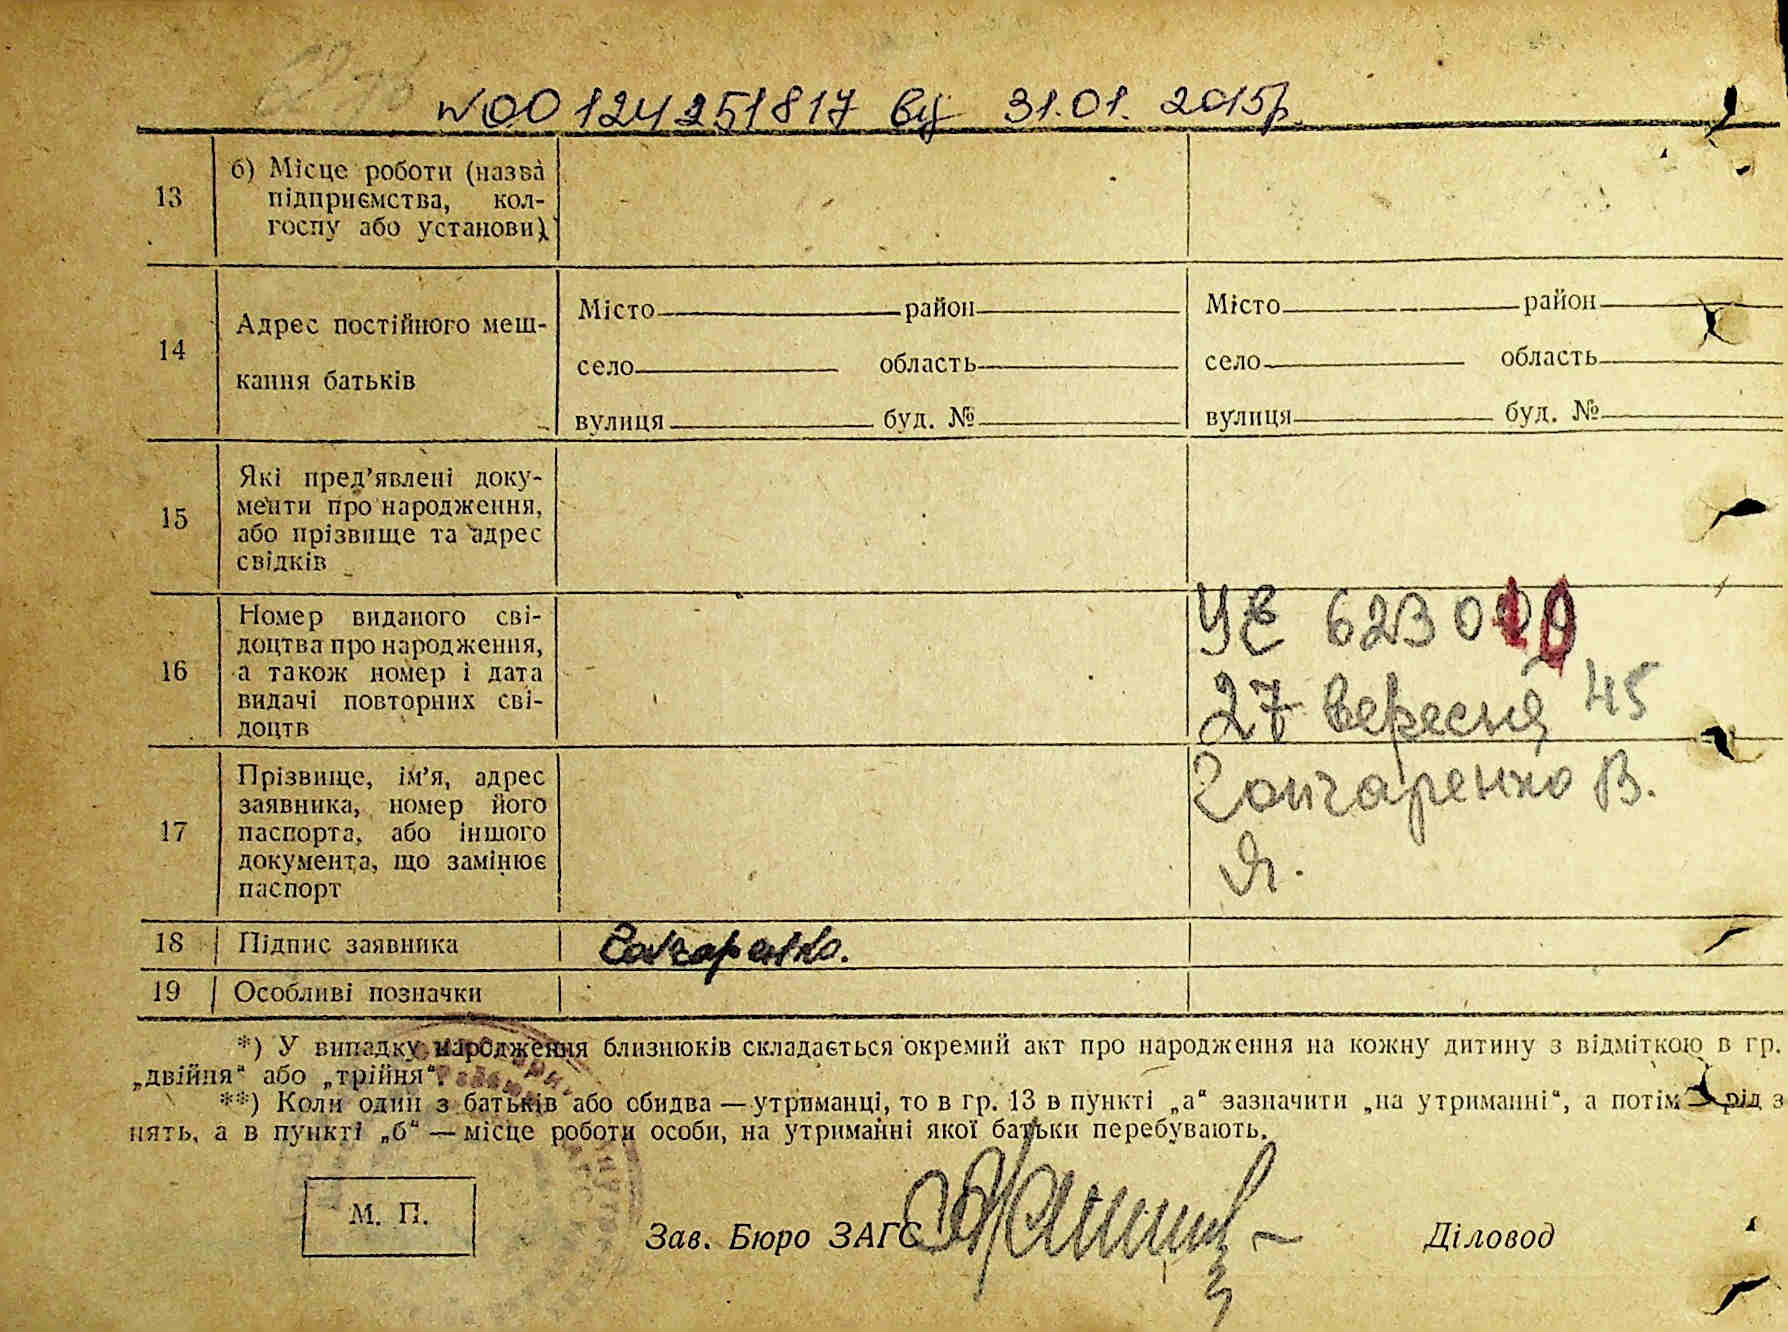 №00124251817 від 31.01.2015р.
13
б) Місце роботи (назва
підприємства, кол-
госпу або установи)
14
Адрес постійного меш-
кання батьків
Місто район
село область
вулиця буд. №
Місто район
село область
вулиця буд. №
15
Які пред’явлені доку-
менти про народження,
або прізвище та адрес
свідків
16
Номер виданого сві-
доцтва про народження,
а також номер і дата
видачі повторних сві-
доцтв
УЄ 623010
27 вересня 45
17
Прізвище, ім’я, адрес
заявника, номер його
паспорта, або іншого
документа, що замінює
паспорт
Гончаренко В.
Я.
18 Підпис заявника
Гончаренко.
19 Особливі позначки
*) У випадку народження близнюків складається окремий акт про народження на кожну дитину з відміткою в гр.
„двійня“ або „трійня“.
**) Коли один з батьків або обидва — утриманці, то в гр. 13 в пункті „а“ зазначити „на утриманні“, а потім — рід з
нять, а в пункті „б“ — місце роботи особи, на утриманні якої батьки перебувають.
М. П.
Зав. Бюро ЗАГС
Діловод